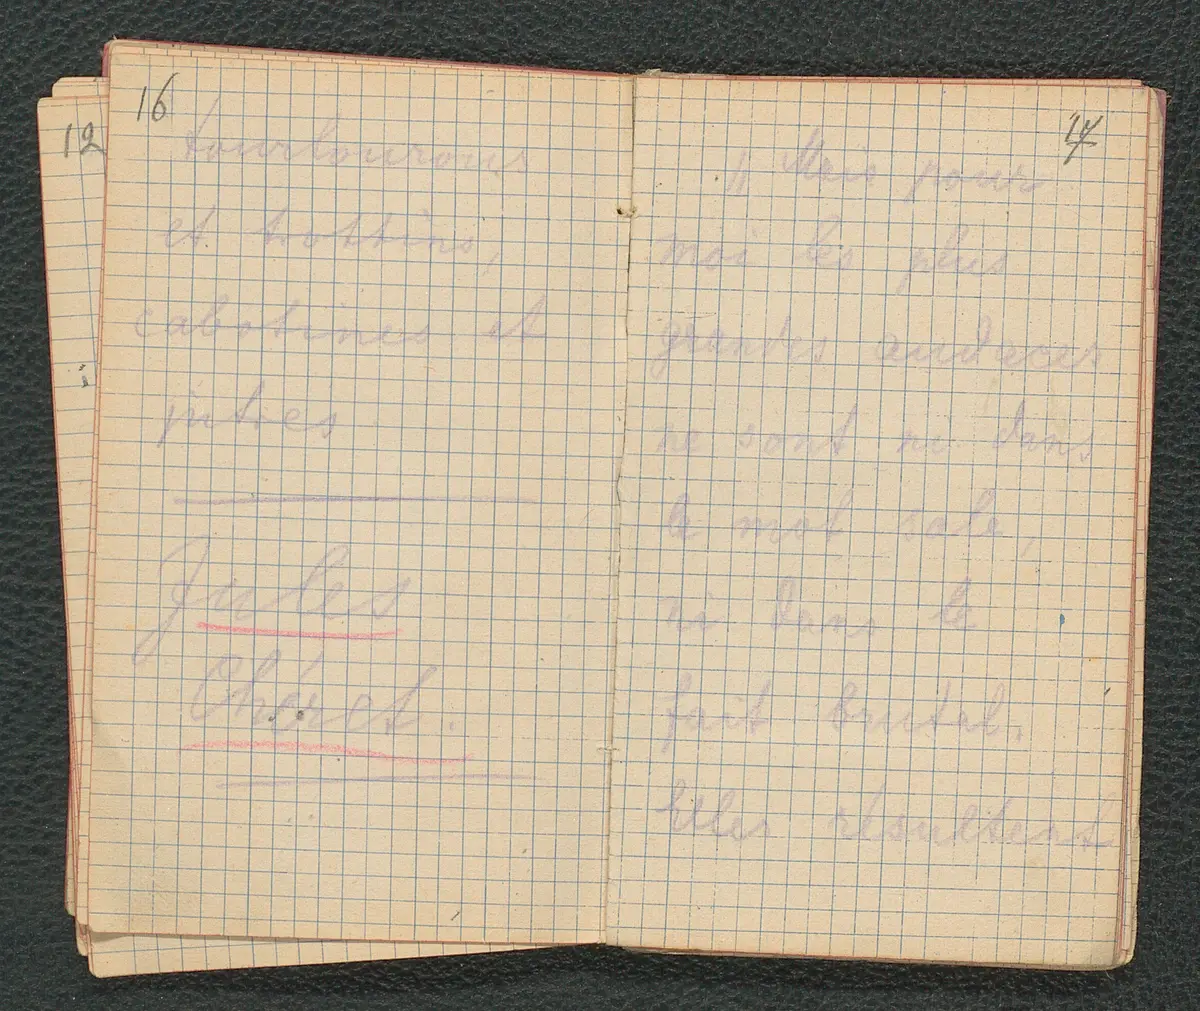 12
16
tourlourous
et trottins,
cabotines et
Jules
Chéret.
17
Mais pour
moi les plus
grandes audaces
ne sont ni dans
le mot sale,
ni dans le
fait brutal.
Elles résultent